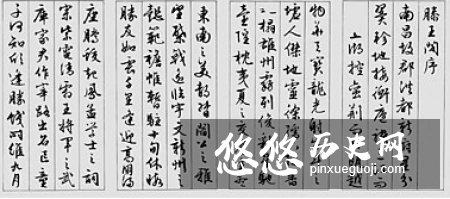 滕王阁序
南昌故郡洪都新府星分
翼轸地接衡庐襟三江而
湖控蛮荆而越
物华天宝龙光射
墟人杰地灵徐孺
榻雄州雾列俊驰
台隍枕夷夏之交
东南之美都督阎公之雅
望棨戟遥临宇文新州之
懿范襜帷暂驻十旬休暇
胜友如云千里逢迎高朋满
座腾蛟起凤孟学士之词
宗紫电清霜王将军之武
库家君作宰路出名区童
子何知躬逢胜饯时维九月
悠悠历史网
pinxueguoji.com